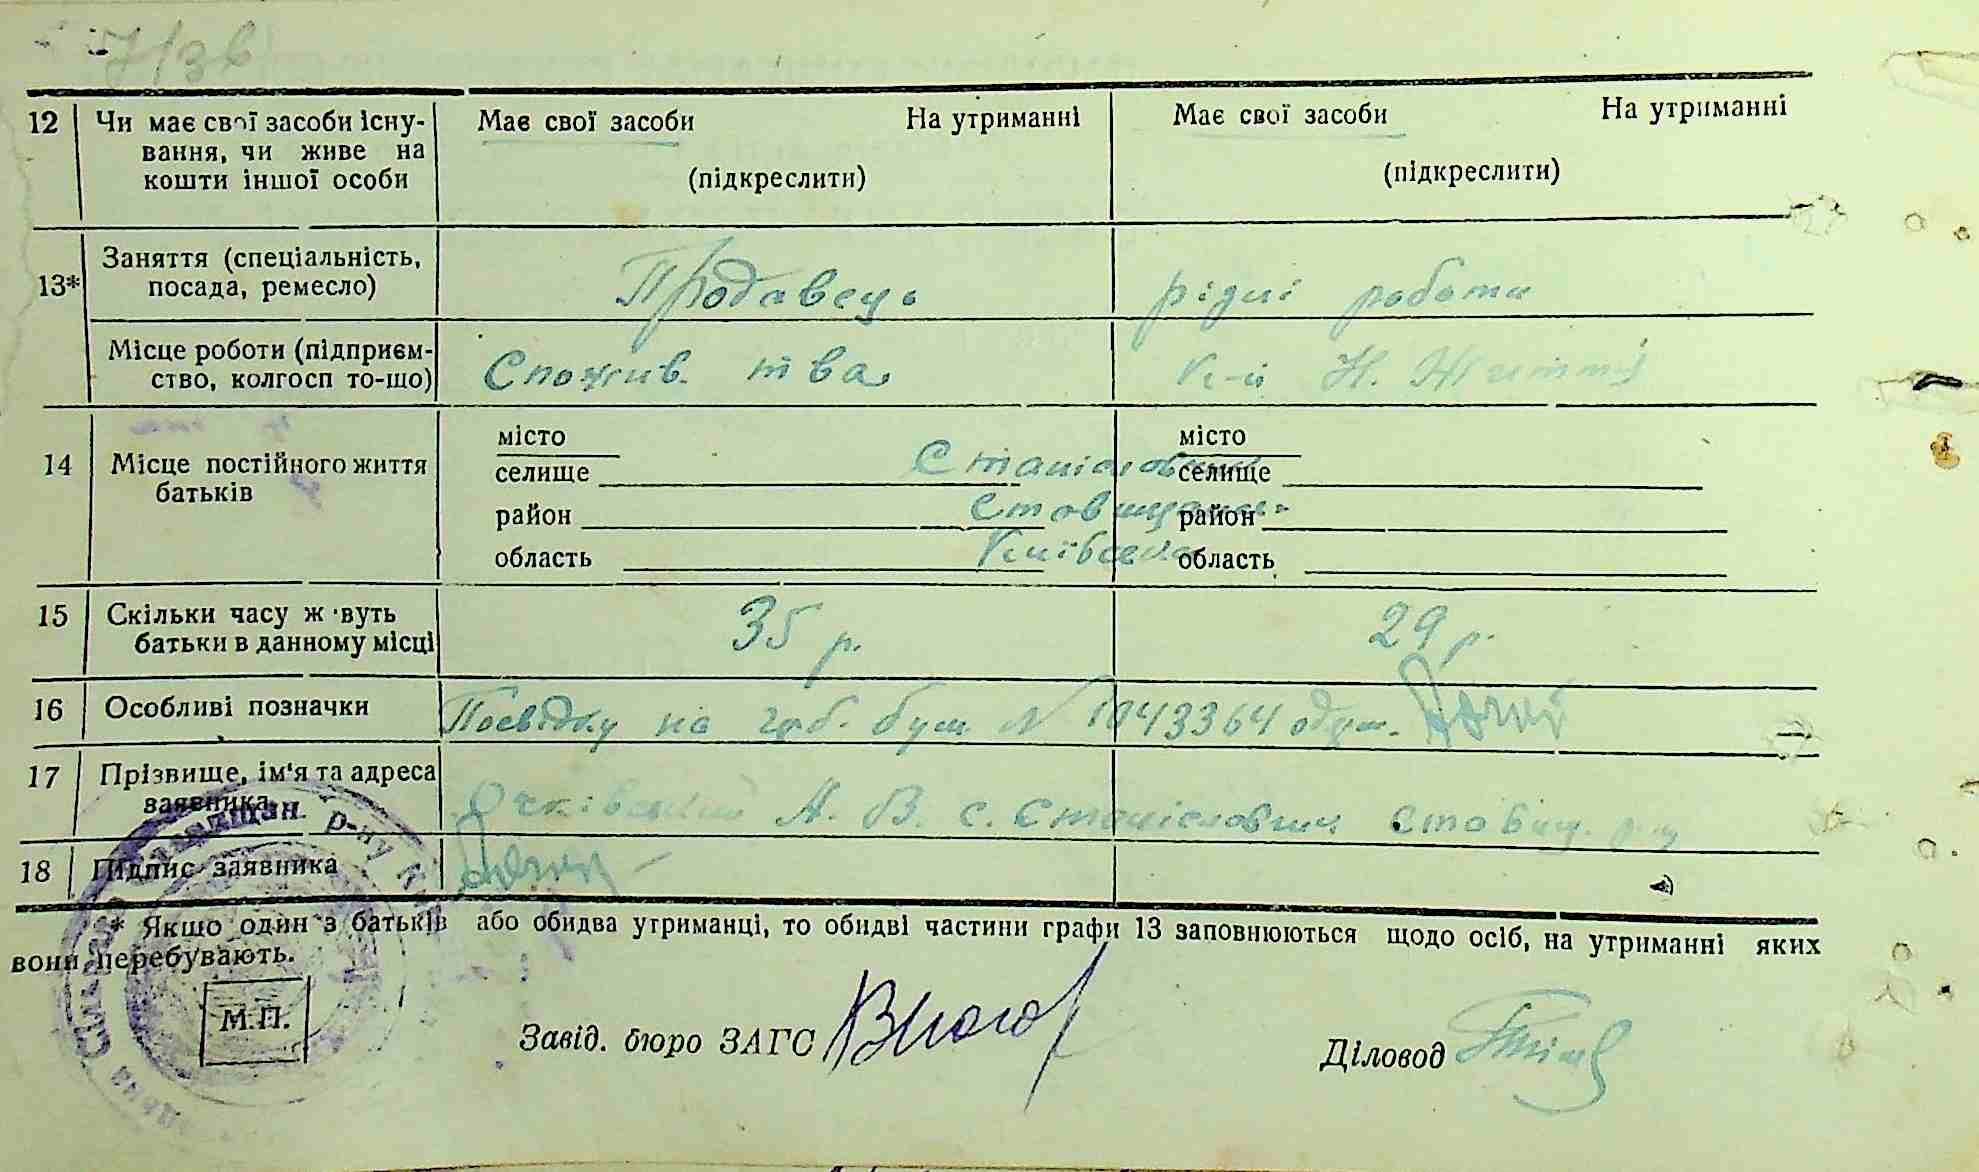 7/36
12 Чи має свої засоби існу- Має свої засоби На утриманні Має свої засоби На утриманні
вання, чи живе на
кошти іншої особи (підкреслити) (підкреслити)
13* Заняття (спеціальність,
посада, ремесло) Продавець рідні робота
Місце роботи (підприєм-
ство, колгосп то-що) Спожив. тва к-п Н. Життя
14 Місце постійного життя
батьків
місто місто
селище Станіслов селище
район Ставищан район
область Київська область
15 Скільки часу ж вуть
батьки в данному місці 35 р. 29 р.
16 Особливі позначки Посвідку на № 1043364 одерж.
17 Прізвище, ім'я та адреса
заявника Очківський А. В. с. Станісловчик Ставищ. р-ну
18 Підпис заявника
* Якщо один з батьків або обидва утриманці, то обидві частини графи 13 заповнюються щодо осіб, на утриманні яких
вони перебувають.
М.П.
Завід. бюро ЗАГС Діловод
р-ну